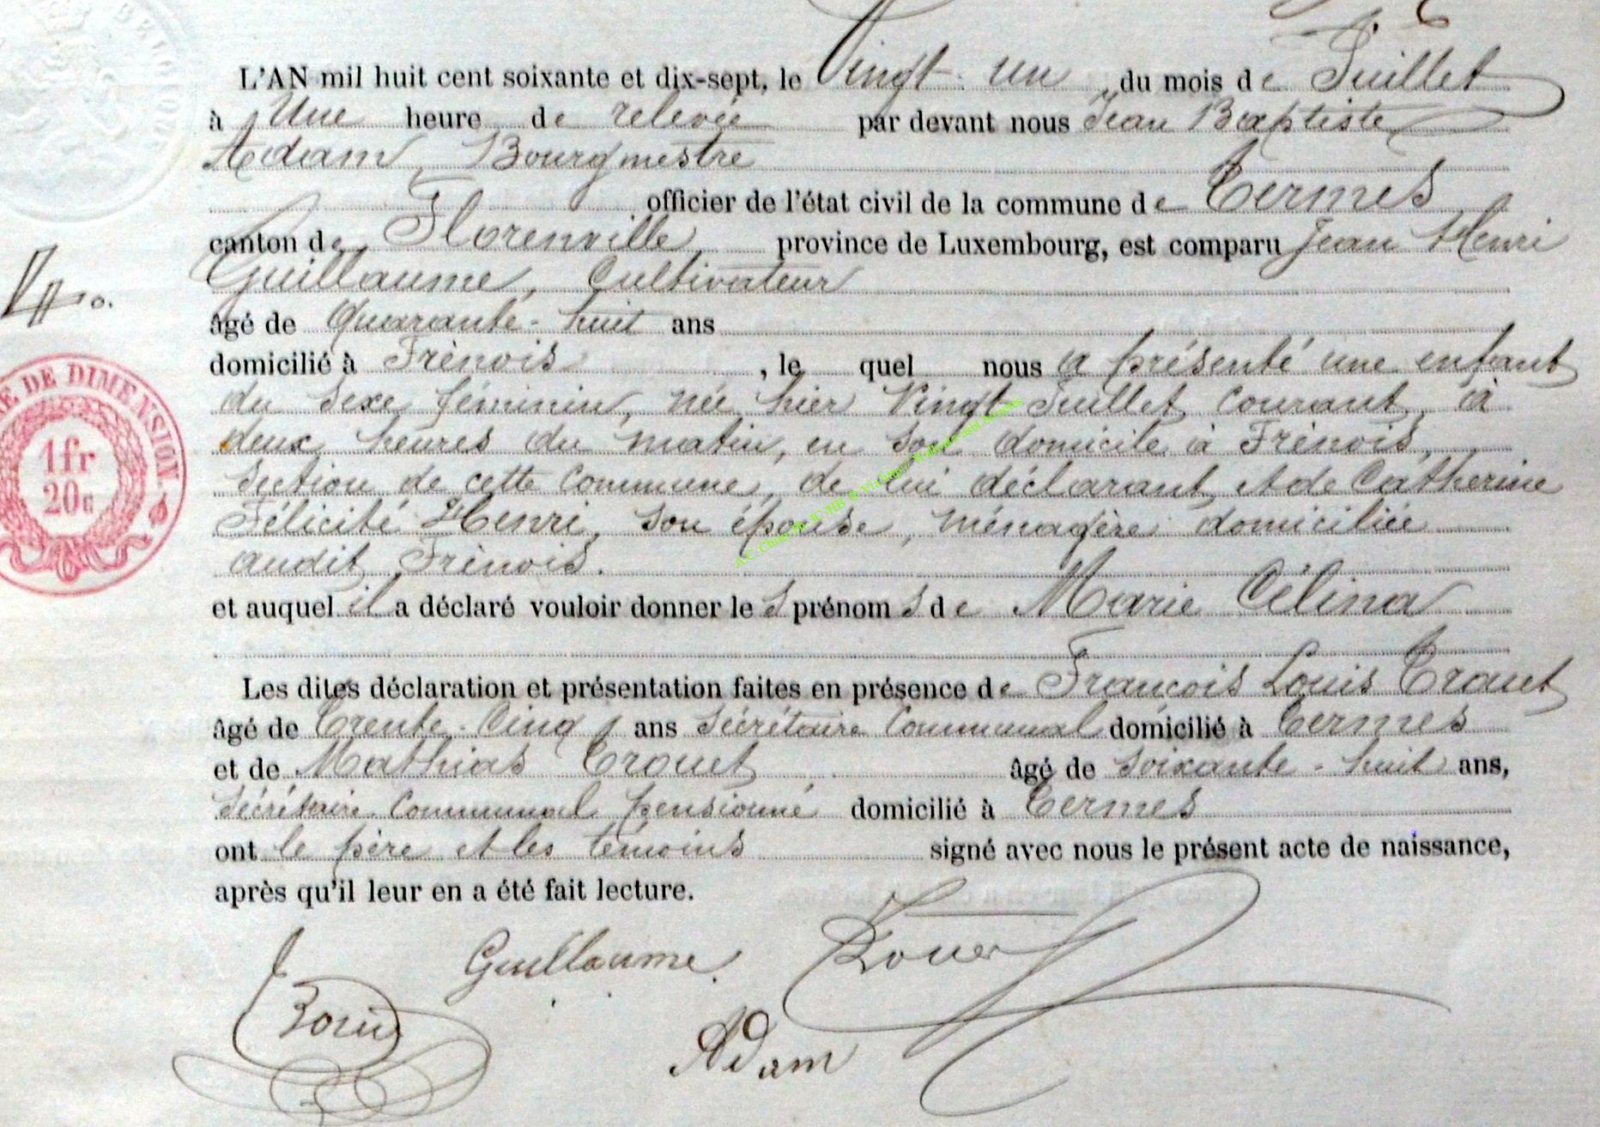 L'AN mil huit cent soixante et dix-sept, le Vingt-un du mois de Juillet
à Une heure de relevée par devant nous Jean Baptiste
Adam, Bourgmestre
officier de l'état civil de la commune de Termes
canton de Florenville province de Luxembourg, est comparu Jean Henri
Guillaume, Cultivateur
âgé de Quarante-huit ans
domicilié à Frènois, le quel nous a présenté une enfant
du sexe féminin, née hier Vingt Juillet courant, à
deux heures du matin, en son domicile à Frènois,
section de cette commune, de lui déclarant et de Catherine
Félicité Henri, son épouse, ménagère domiciliée
audit Frènois.
et auquel il a déclaré vouloir donner les prénoms de Marie Célina
Les dites déclaration et présentation faites en présence de François Louis Trouet
âgé de Trente-Cinq ans Sécrétaire Communal domicilié à Termes
et de Mathias Trouet âgé de soixante-huit ans,
Sécrétaire Communal pensionné domicilié à Termes
ont le père et les témoins signé avec nous le présent acte de naissance,
après qu'il leur en a été fait lecture.
Guillaume
Adam
DE DIMENSION
1fr
20c